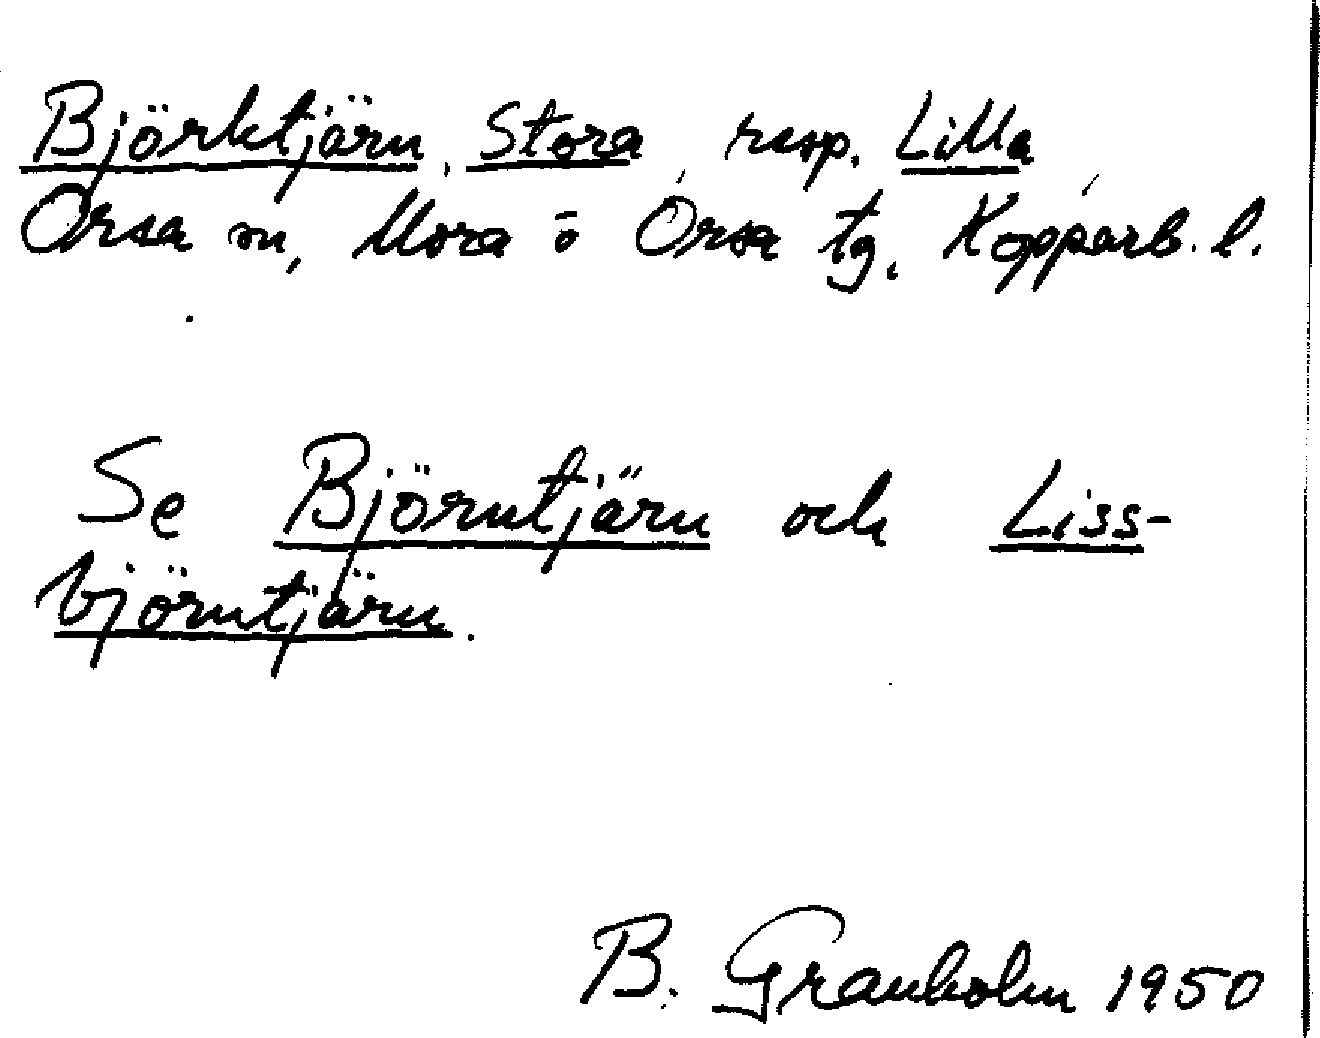 Björktjärn, Stora, resp. Lilla,
Orsa sn, Mora o Orsa tg, Kopparb. l.
Se Björntjärn och Liss-
björntjärn.
B. Granholm 1950